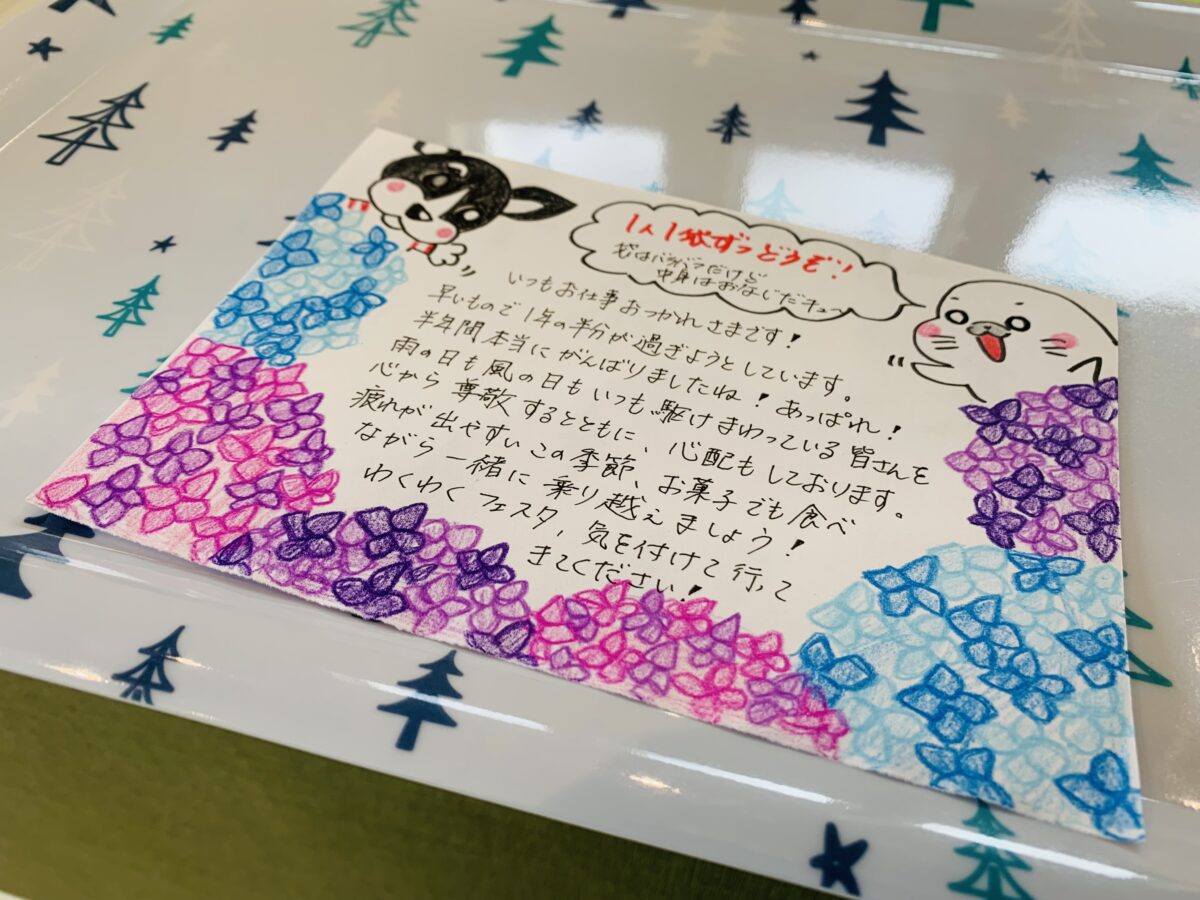 1人1袋ずつどうぞ!
袋はバラバラだけど
中身はおなじだキュ〜
いつもお仕事おつかれさまです!
早いもので1年の半分が過ぎようとしています。
半年間本当にがんばりましたね!あっぱれ!
雨の日も風の日もいつも駆けまわっている皆さんを
心から尊敬するとともに、心配もしております。
疲れが出やすいこの季節、お菓子でも食べ
ながら一緒に乗り越えましょう!
わくわくフェスタ、気を付けて行って
きてください!